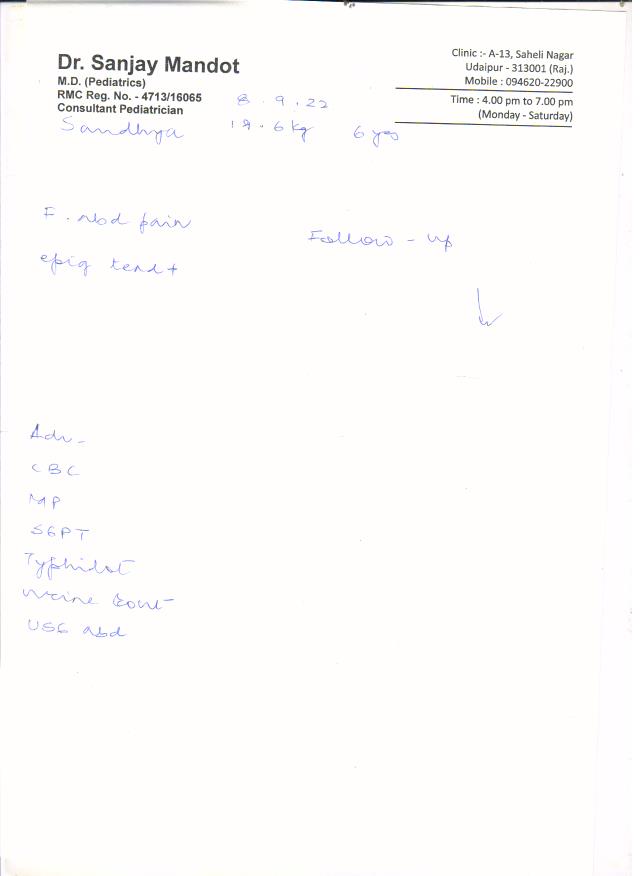 Dr. Sanjay Mandot
M.D. (Pediatrics)
RMC Reg. No. - 4713/16065
Consultant Pediatrician
Clinic :- A-13, Saheli Nagar
Udaipur - 313001 (Raj.)
Mobile : 094620-22900
Time : 4.00 pm to 7.00 pm
(Monday - Saturday)
8 . 9 . 22
Sandhya 19.6 kg 6 yrs
F. abd pain
Follow - up
epig tend +
Adv -
CBC
MP
SGPT
Typhidot
Urine Rout
USG abd